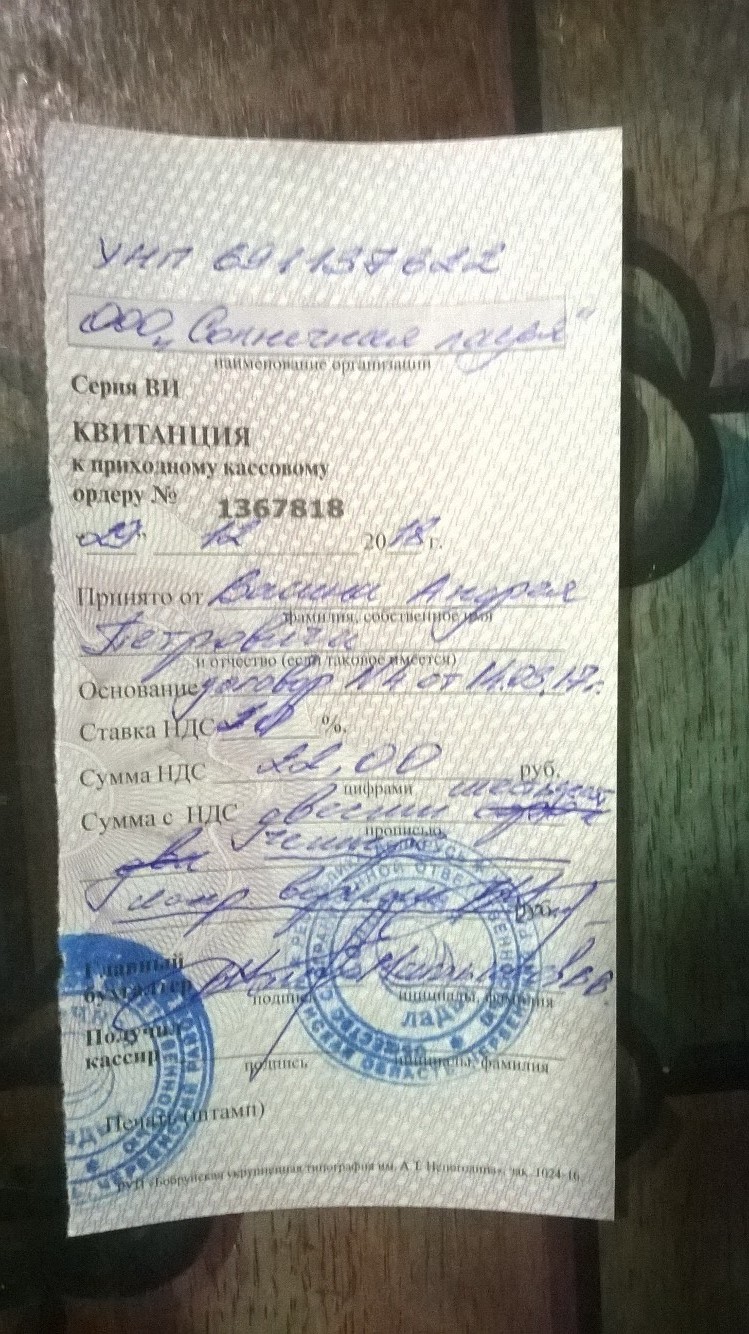 УНП 691137622
ООО „Солничная ладья"
наименование организации
Серия ВИ
КВИТАНЦИЯ
к приходному кассовому
ордеру № 1367818
"27" 12 2018 г.
Принято от Васина Андрея
фамилия, собственное имя
Петровича
и отчество (если таковое имеется)
Основание договор N4 от 14.03.17г.
Ставка НДС 20 %.
Сумма НДС 22,00 руб.
цифрами
Сумма с НДС двести шестьдесят
прописью
два
руб.
Главный
бухгалтер
подпись инициалы, фамилия
Получил
кассир
подпись инициалы, фамилия
Печать (штамп)
РУП «Бобруйская укрупненная типография им. А.Т. Непогодина», зак. 1024-16.